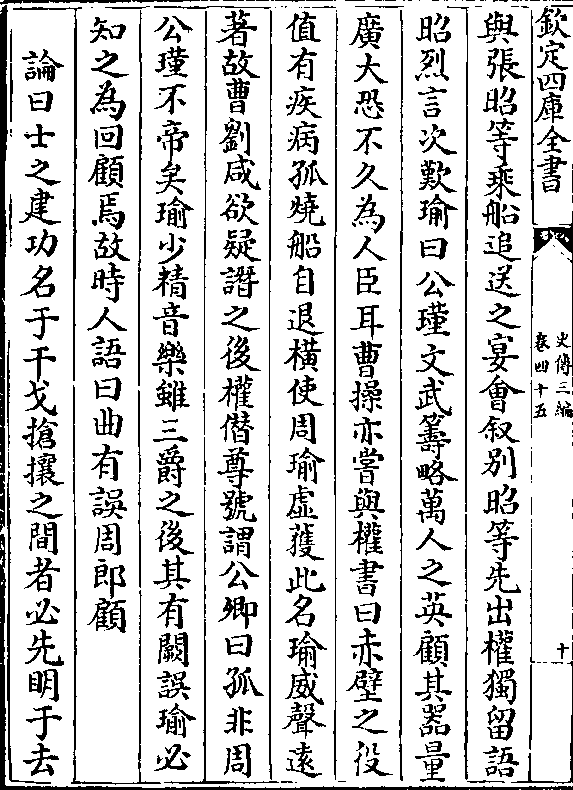 欽定四庫全書
史傳三編
卷四十五
十
與張昭等乘船追送之宴會叙别昭等先出權獨留語
昭烈言次歎瑜曰公瑾文武籌略萬人之英顧其器量
廣大恐不久為人臣耳曹操亦嘗與權書曰赤壁之役
值有疾病孤燒船自退橫使周瑜虛獲此名瑜威聲遠
著故曹劉咸欲疑譖之後權僭尊號謂公卿曰孤非周
公瑾不帝矣瑜少精音樂雖三爵之後其有闕誤瑜必
知之為回顧焉故時人語曰曲有誤周郎顧
論曰士之建功名于干戈搶攘之間者必先明于去